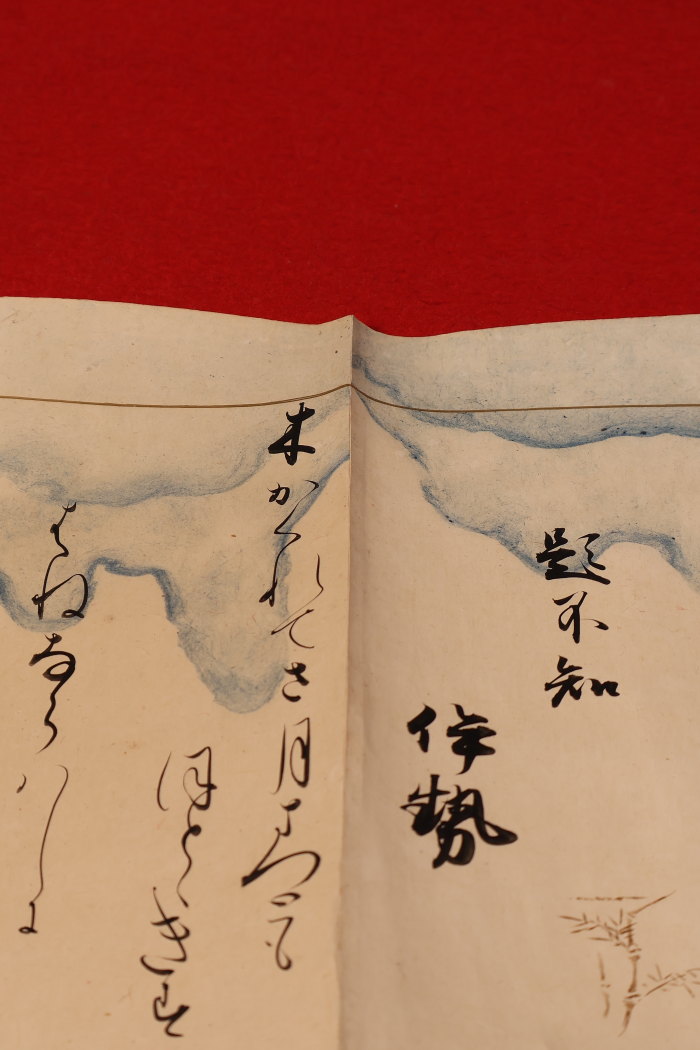 題不知
伊勢
木かくれてさ月まつとも
ほとゝきす
はねならハしに